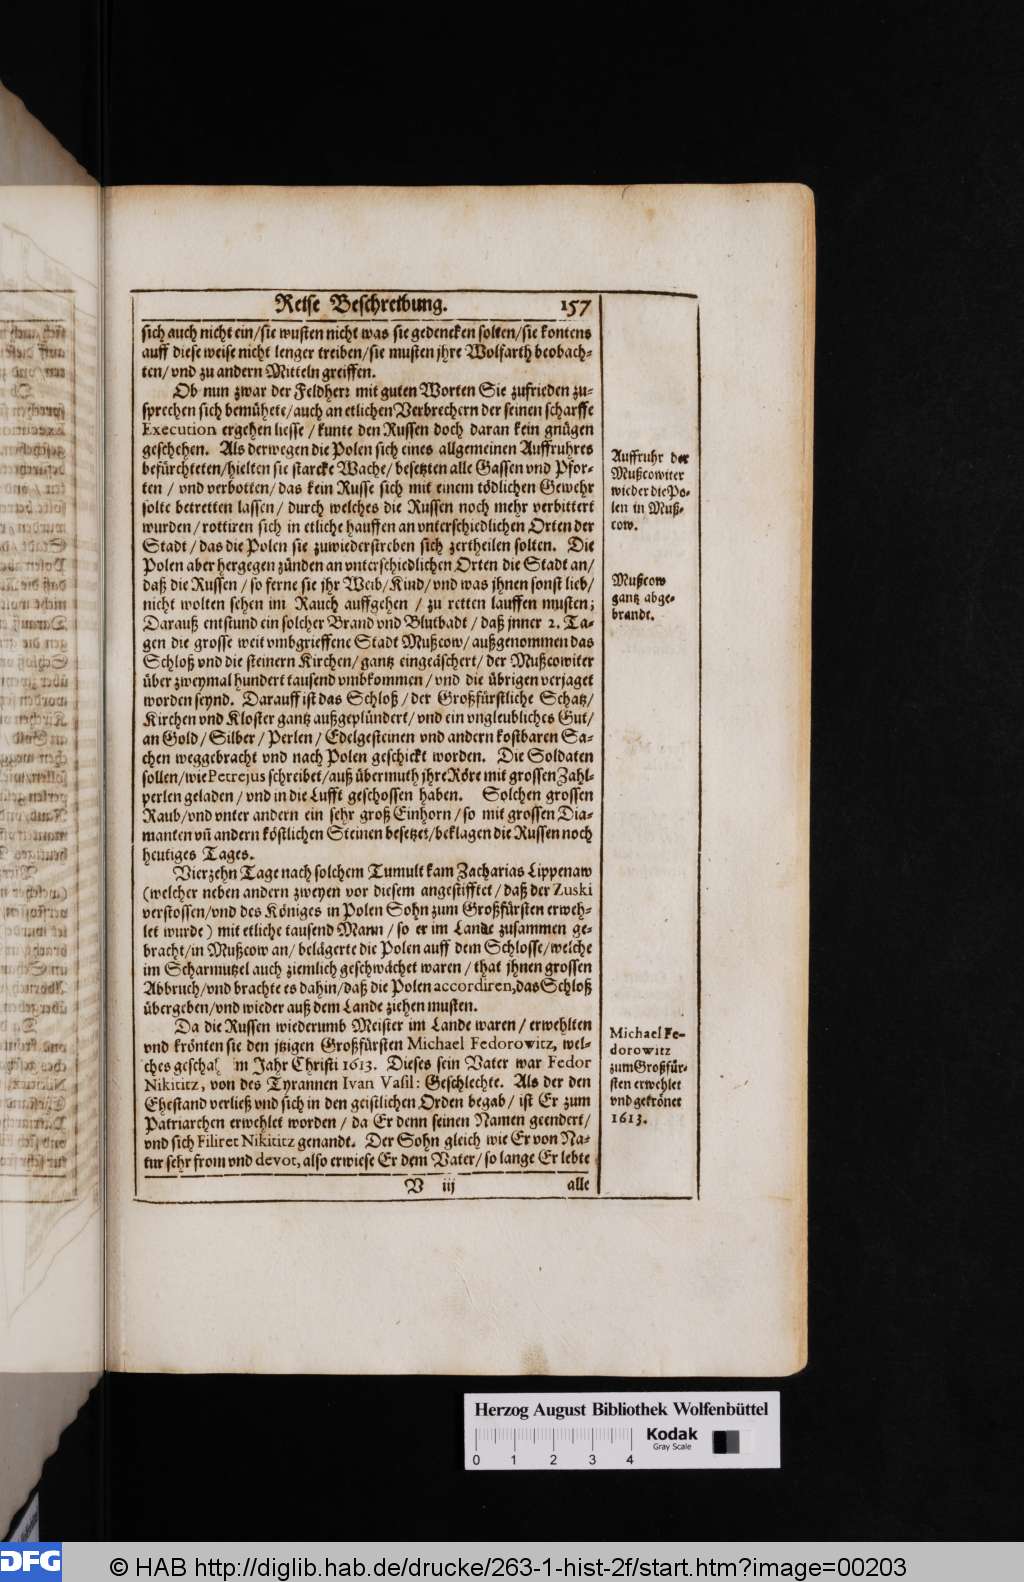 Reise Beschreibung. 157
sich auch nicht ein/sie wusten nicht was sie gedencken solten/sie kontens
auff diese weise nicht lenger treiben/sie musten jhre Wolfarth beobach-
ten/vnd zu andern Mitteln greiffen.
Ob nun zwar der Feldherr mit guten Worten Sie zufrieden zu-
sprechen sich bemühete/auch an etlichen Verbrechern der seinen scharffe
Execution ergehen liesse/kunte den Russen doch daran kein gnügen
geschehen. Als derwegen die Polen sich eines allgemeinen Auffruhres
befürchteten/hielten sie starcke Wache/besetzten alle Gassen vnd Pfor-
ten/vnd verbotten/das kein Russe sich mit einem tödlichen Gewehr
solte betretten lassen/durch welches die Russen noch mehr verbittert
wurden/rottiren sich in etliche hauffen an vnterschiedlichen Orten der
Stadt/das die Polen sie zuwiederstreben sich zertheilen solten. Die
Polen aber hergegen zünden an vnterschiedlichen Orten die Stadt an/
daß die Russen/so ferne sie jhr Weib/Kind/vnd was jhnen sonst lieb/
nicht wolten sehen im Rauch auffgehen/zu retten lauffen musten;
Darauß entstund ein solcher Brand vnd Blutbadt/daß jnner 2. Ta-
gen die grosse weit vmbgrieffene Stadt Mußcow/außgenommen das
Schloß vnd die steinern Kirchen/gantz eingeäschert/der Mußcowiter
über zweymal hundert tausend vmbkommen/vnd die übrigen verjaget
worden seynd. Darauff ist das Schloß/der Großfürstliche Schatz/
Kirchen vnd Kloster gantz außgeplündert/vnd ein vngleubliches Gut/
an Gold/Silber/Perlen/Edelgesteinen vnd andern kostbaren Sa-
chen weggebracht vnd nach Polen geschickt worden. Die Soldaten
sollen/wie Petrejus schreibet/auß übermuth jhre Röre mit grossen Zahl-
perlen geladen/vnd in die Lufft geschossen haben. Solchen grossen
Raub/vnd vnter andern ein sehr groß Einhorn/so mit grossen Dia-
manten vñ andern köstlichen Steinen besetzet/beklagen die Russen noch
heutiges Tages.
Vierzehn Tage nach solchem Tumult kam Zacharias Lippenaw
(welcher neben andern zweyen vor diesem angestifftet/daß der Zuski
verstossen/vnd des Königes in Polen Sohn zum Großfürsten erweh-
let wurde) mit etliche tausend Mann/so er im Lande zusammen ge-
bracht/in Mußcow an/belägerte die Polen auff dem Schlosse/welche
im Scharmützel auch ziemlich geschwächet waren/that jhnen grossen
Abbruch/vnd brachte es dahin/daß die Polen accordiren, das Schloß
übergeben/vnd wieder auß dem Lande ziehen musten.
Da die Russen wiederumb Meister im Lande waren/erwehlten
vnd krönten sie den jtzigen Großfürsten Michael Fedorowitz, wel-
ches gescha m Jahr Christi 1613. Dieses sein Vater war Fedor
Nikititz, von des Tyrannen Ivan Vasil: Geschlechte. Als der den
Ehestand verließ vnd sich in den geistlichen Orden begab/ist Er zum
Patriarchen erwehlet worden/da Er denn seinen Namen geendert/
vnd sich Filiret Nikititz genandt. Der Sohn gleich wie Er von Na-
tur sehr from vnd devot, also erwiese Er dem Vater/so lange Er lebte
V iij alle
Auffruhr der
Mußcowiter
wieder die Po-
len in Muß-
cow.
Mußcow
gantz abge-
brandt.
Michael Fe-
dorowitz
zum Großfür-
sten erwehlet
vnd gekrönet
1613.
Herzog August Bibliothek Wolfenbüttel
Kodak
Gray Scale
0 1 2 3 4
DFG
© HAB http://diglib.hab.de/drucke/263-1-hist-2f/start.htm?image=00203